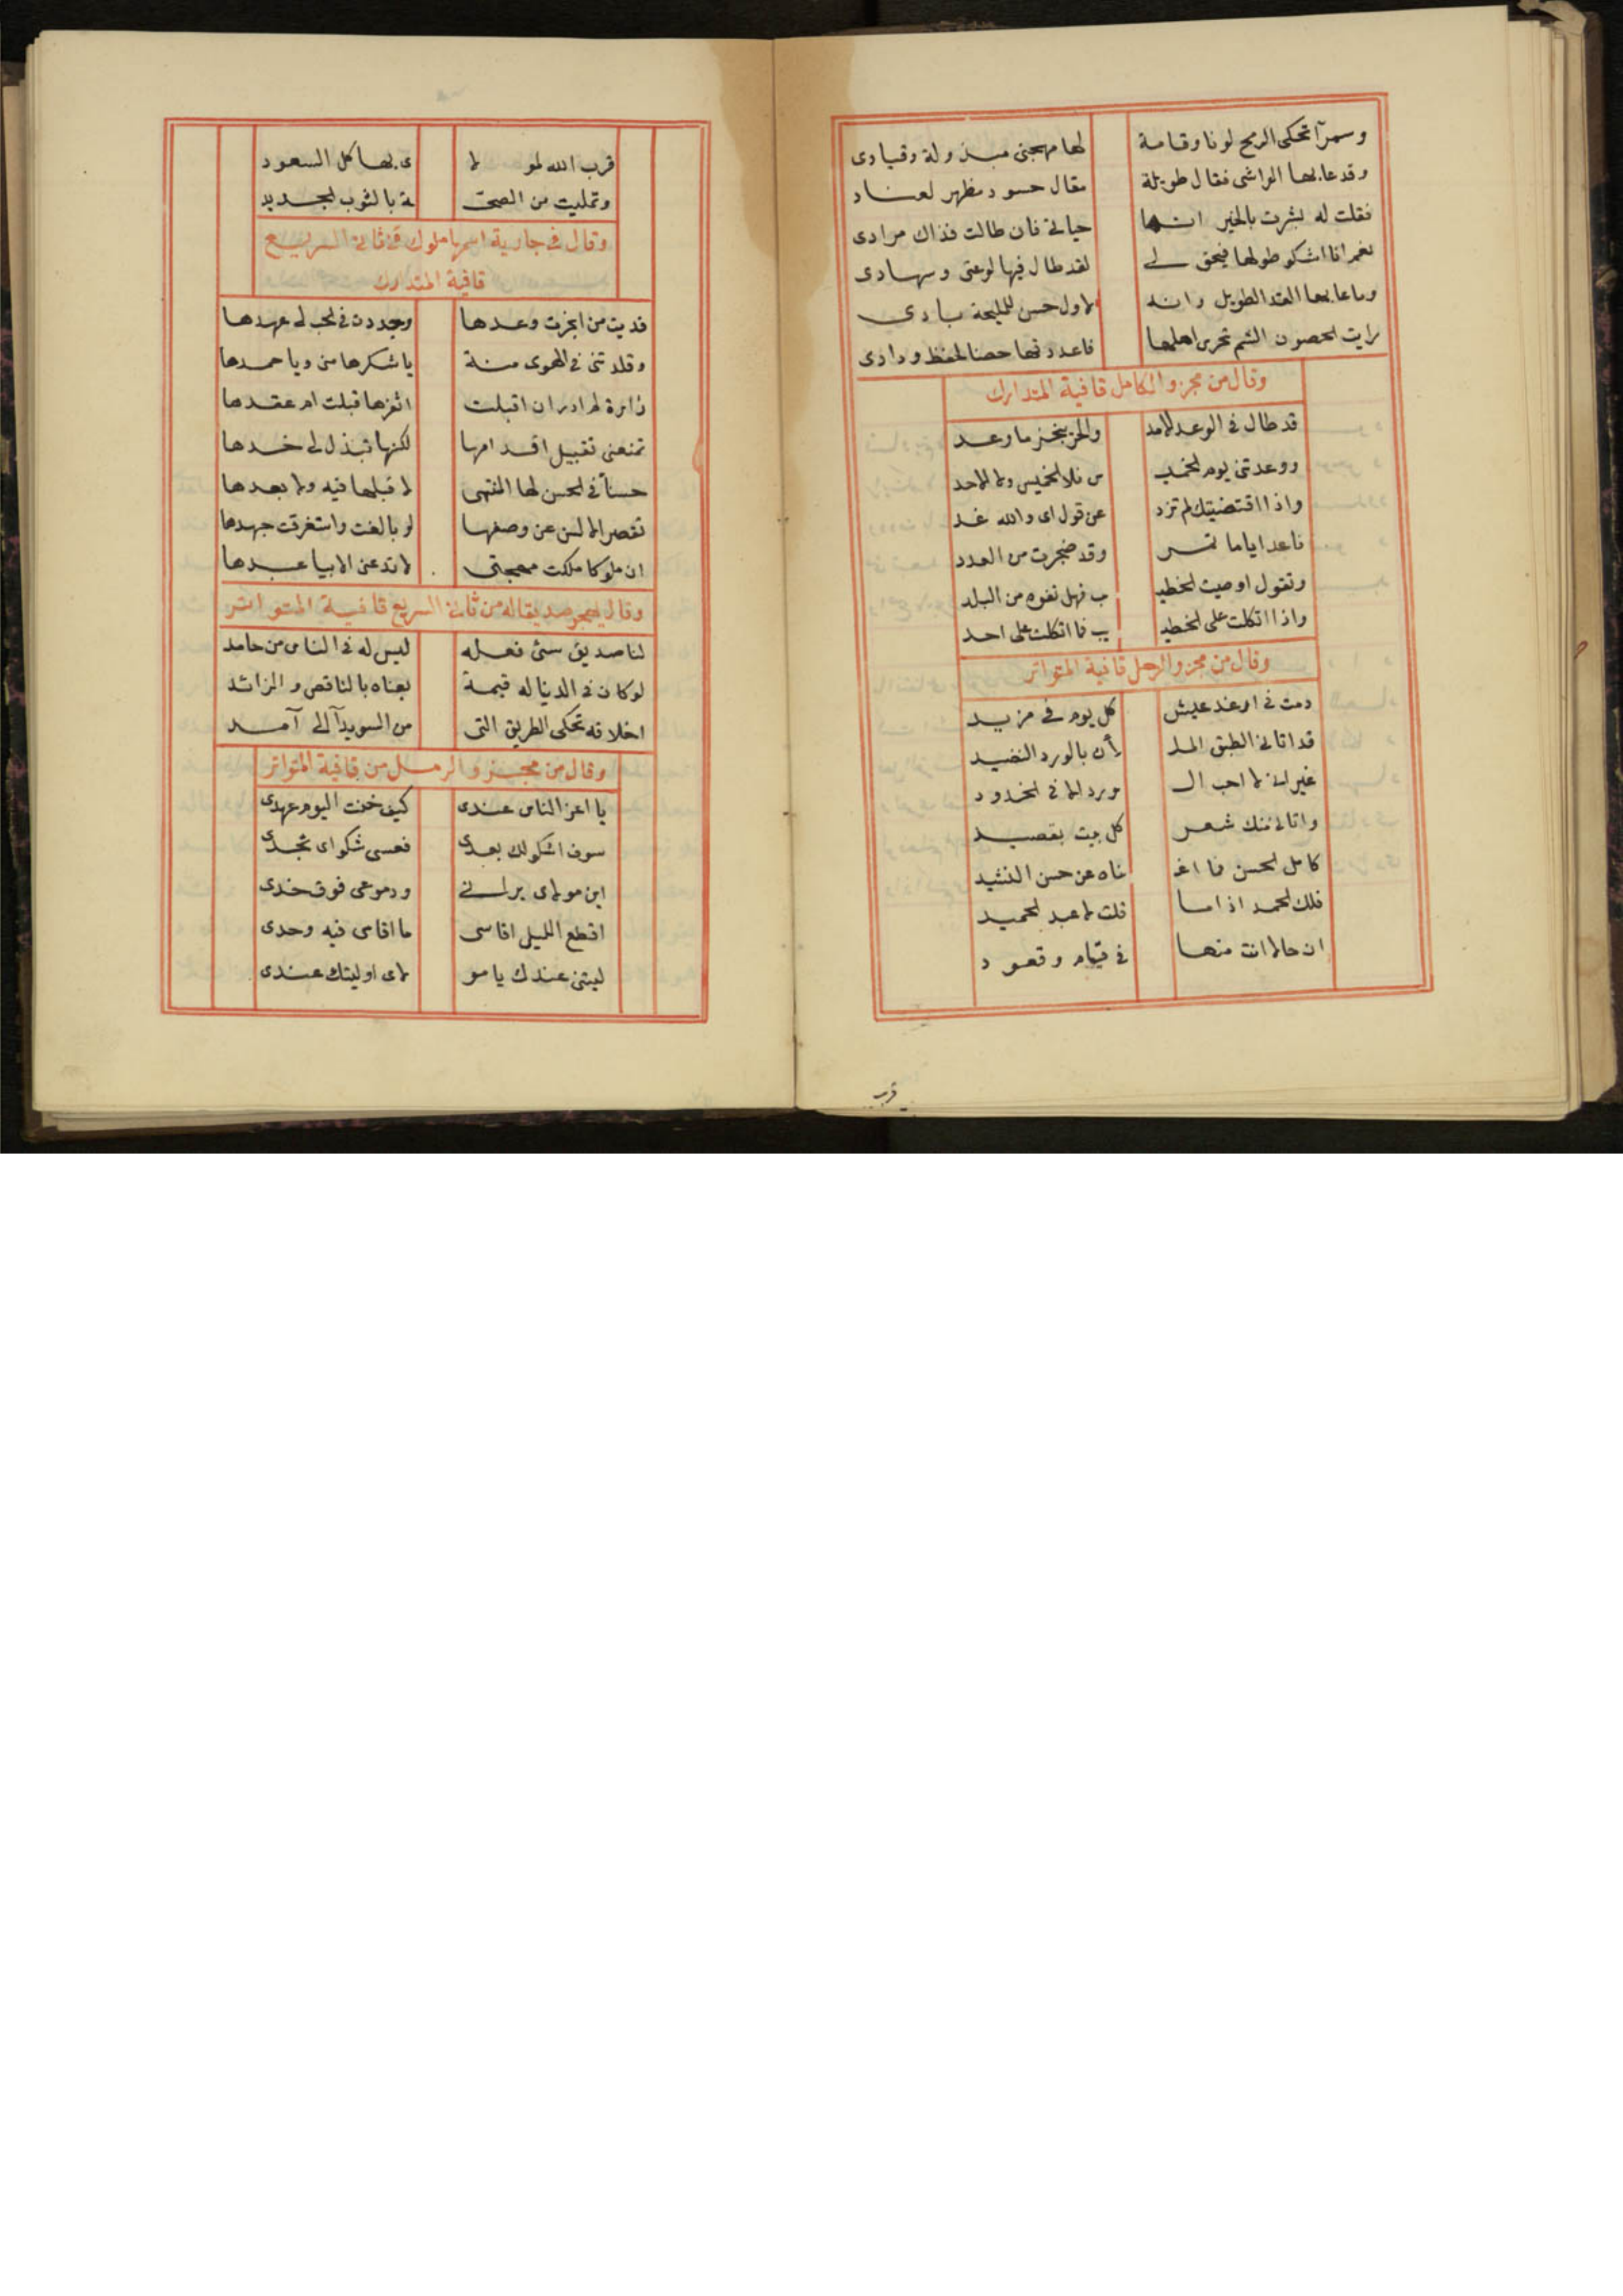 وسمرآ تحكى الرمح لونا وقامة لها مهجتى مبذولة وقيادى
وقد عابها الواشى فقال طويلة مقال حسود مظهر لعناد
فقلت له بشرت بالخير انها حياتى فان طالت فذاك مرادى
نعم انا اشكو طولها فيحق لى لقد طال فيها لوعتى وسهادى
وما عابها القد الطويل وانه لاول حسن للمليحة بادى
رايت الحصون الشم تحرس اهلها فاعددتها حصنا لحفظ ودادى
وقال من مجزو الكامل قافية المتدارك
قد طال فى الوعد الامد والحر ينجز ما وعد
ووعدتنى يوم الخميـ س فلا الخميس ولا الاحد
واذا اقتضيتك لم تزد عن قول اى والله غد
فاعد اياما تمر وقد ضجرت من العدد
وتقول اوصيت الخطيـ ب فهل نفوه من البلد
واذا اتكلت على الخطيـ ـب فما اتكلت على احد
وقال من مجزو الرمل قافية المتواتر
دمت فى ارغد عيش كل يوم فى مزيد
قد اتانى الطبق الملـ لأن بالورد النضيد
غير انى لا احب الـ ورد الا فى الخدود
واتانى منك شعر كل بيت بقصيد
كامل الحسن فما اغـ ناه عن حسن النشيد
فلك الحمد اذا ما قلت لا عبد الحميد
ان حالا انت منها فى قيام وقعود
قرب
قرب الله لمو لا ى بها كل السعود
وتمليت من الصحـ ـة بالثوب الجديد
وقال فى جارية اسمها ملوك من ثانى السريع
قافية المتدارك
فديت من انجزت وعدها وجددت فى الحب لى عهدها
وقلدتنى فى الهوى منة يا شكرها منى ويا حمدها
زائرة لم ادر ان اقبلت اثغرها قبلت ام عقدها
تمنعنى تقبيل اقدامها لكنها تبذل لى خدها
حسنآ فى الحسن لها المنتهى لا قبلها فيه ولا بعدها
تقصر الالسن عن وصفها لو بالغت واستغرقت جهدها
ان ملوكا ملكت مهجتى لا تدعنى الا بيا عبدها
وقال يهجو صديقا له من ثانى السريع قافية المتواتر
لنا صديق سئ فعله ليس له فى الناس من حامد
لو كان فى الدنيا له قيمة بعناه بالناقص والزائد
اخلاقه تحكى الطريق التى من السويدآ الى آمد
وقال من مجزو الرمل من قافية المتواتر
يا اعز الناس عندى كيف خنت اليوم عهدى
سوف اشكو لك بعدى فعسى شكواى تجدى
اين مولاى يرانى ودموعى فوق خدى
اقطع الليل اقاسى ما اقاسى فيه وحدى
ليتنى عندك يا مو لاى او ليتك عندى